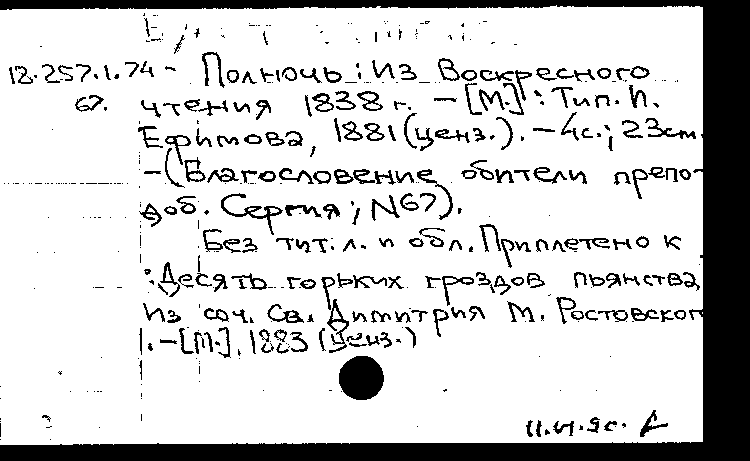 18.257.1.74 - Полночь : Из Воскресного
67. чтения 1838 г. - [М.] : Тип. И.
Ефимова, 1881 (ценз.). - 4с.; 23см.
- (Благословение обители препо
доб. Сергия; N67).
Без тит. л. и обл. Приплетено к
: Десять горьких гроздов пьянства
из соч. Св. Димитрия М. Ростовског
. - [М.], 1883 (ценз.)